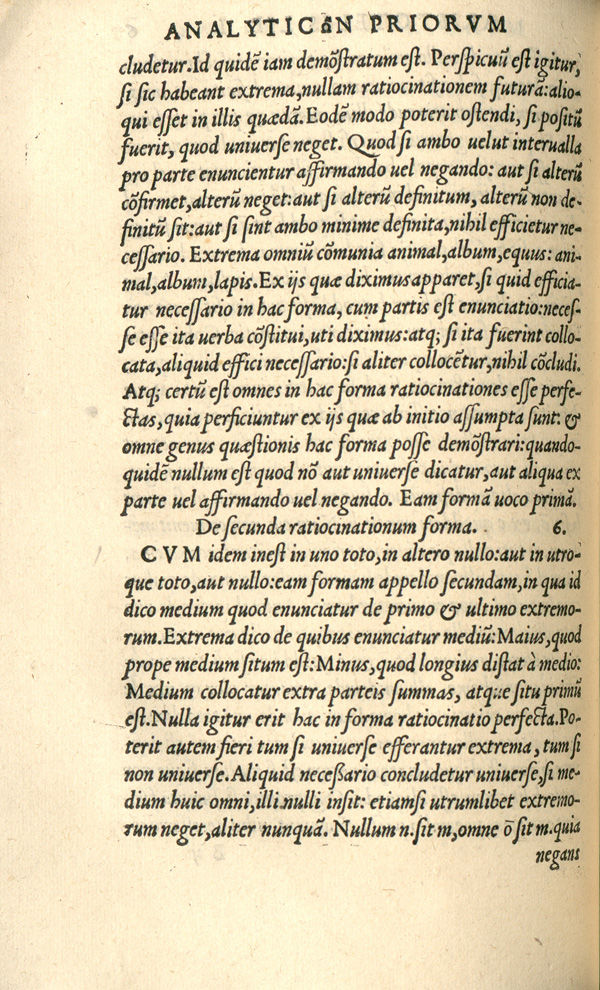 ANALYTICῶN PRIORVM
cludetur.Id quidē iam demōstratum est. Perspicuū est igitur,
si sic habeant extrema,nullam ratiocinationem futurā:alio-
qui esset in illis quædā.Eodē modo poterit ostendi, si positū
fuerit, quod uniuerse neget. Quod si ambo uelut interualla
pro parte enuncientur affirmando uel negando: aut si alterū
cōfirmet,alterū neget:aut si alterū definitum, alterū non de-
finitū sit:aut si sint ambo minime definita,nihil efficietur ne-
cessario. Extrema omniū cōmunia animal,album,equus: ani-
mal,album,lapis.Ex ijs quæ diximus apparet,si quid efficia-
tur necessario in hac forma, cum partis est enunciatio:neces-
se esse ita uerba cōstitui,uti diximus:atq; si ita fuerint collo-
cata,aliquid effici necessario:si aliter collocētur,nihil cōcludi.
Atq; certū est omnes in hac forma ratiocinationes esse perfe-
ctas,quia perficiuntur ex ijs quæ ab initio assumpta sunt: &
omne genus quæstionis hac forma posse demōstrari:quando-
quidē nullum est quod nō aut uniuerse dicatur,aut aliqua ex
parte uel affirmando uel negando. Eam formā uoco primā.
De secunda ratiocinationum forma. 6.
CVM idem inest in uno toto,in altero nullo:aut in utro-
que toto,aut nullo:eam formam appello secundam,in qua id
dico medium quod enunciatur de primo & ultimo extremo-
rum.Extrema dico de quibus enunciatur mediū:Maius,quod
prope medium situm est:Minus,quod longius distat à medio:
Medium collocatur extra parteis summas, atque situ primū
est.Nulla igitur erit hac in forma ratiocinatio perfecta.Po-
terit autem fieri tum si uniuerse efferantur extrema, tum si
non uniuerse.Aliquid neceßario concludetur uniuerse,si me-
dium huic omni,illi nulli insit: etiamsi utrumlibet extremo-
rum neget,aliter nunquā. Nullum n.sit m,omne ō sit m.quia
negans